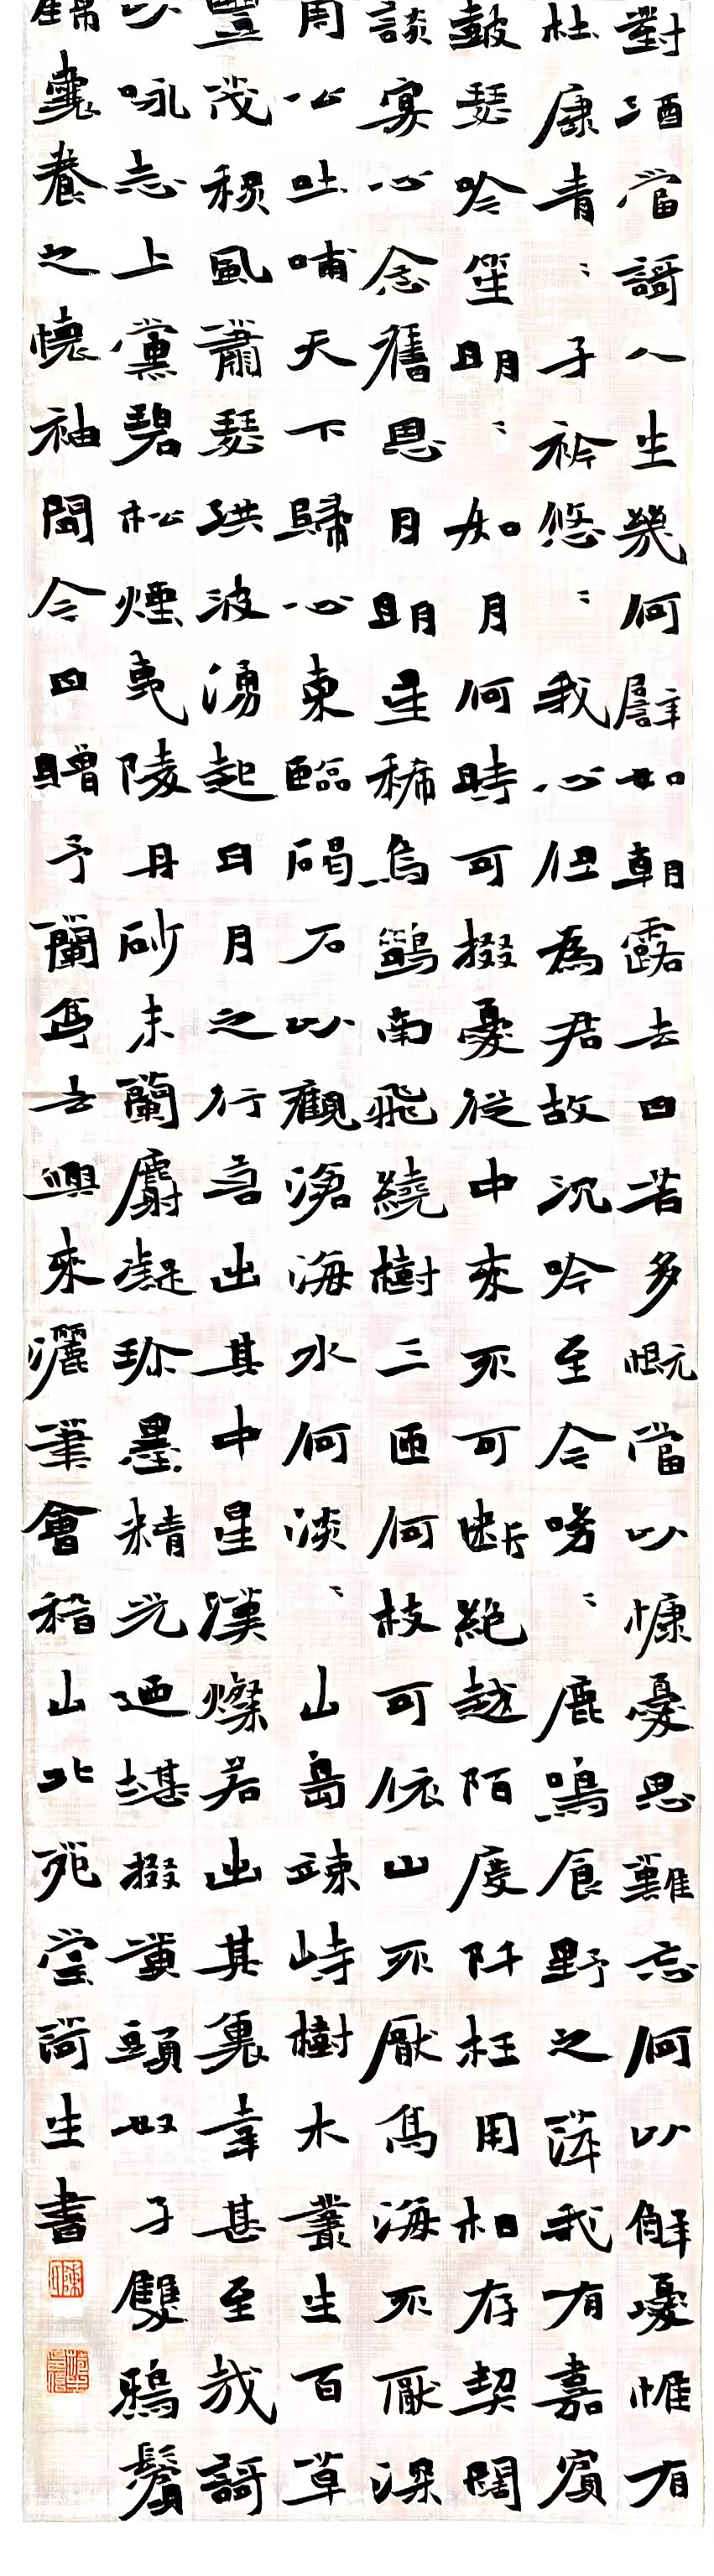 對酒當謌人生幾何譬如朝露去日苦多慨當以慷憂思難忘何以解憂惟有
杜康青〻子衿悠〻我心但為君故沉吟至今呦〻鹿鳴食野之苹我有嘉賓
鼓瑟吹笙明〻如月何時可掇憂從中來不可断絕越陌度阡枉用相存契闊
談宴心念舊恩月明星稀烏鵲南飛繞樹三匝何枝可依山不厭高海不厭深
周公吐哺天下歸心東臨碣石以觀滄海水何淡〻山島竦峙樹木叢生百草
豐茂秋風蕭瑟洪波湧起日月之行若出其中星漢燦若出其裏幸甚至哉謌
以咏志上黨碧松煙夷陵丹砂末蘭麝凝珍墨精光迺堪掇黃頭奴子雙鴉鬟
錦囊養之懷袖間今日贈予蘭亭去興來灑筆會稽山北苑堂荷生書